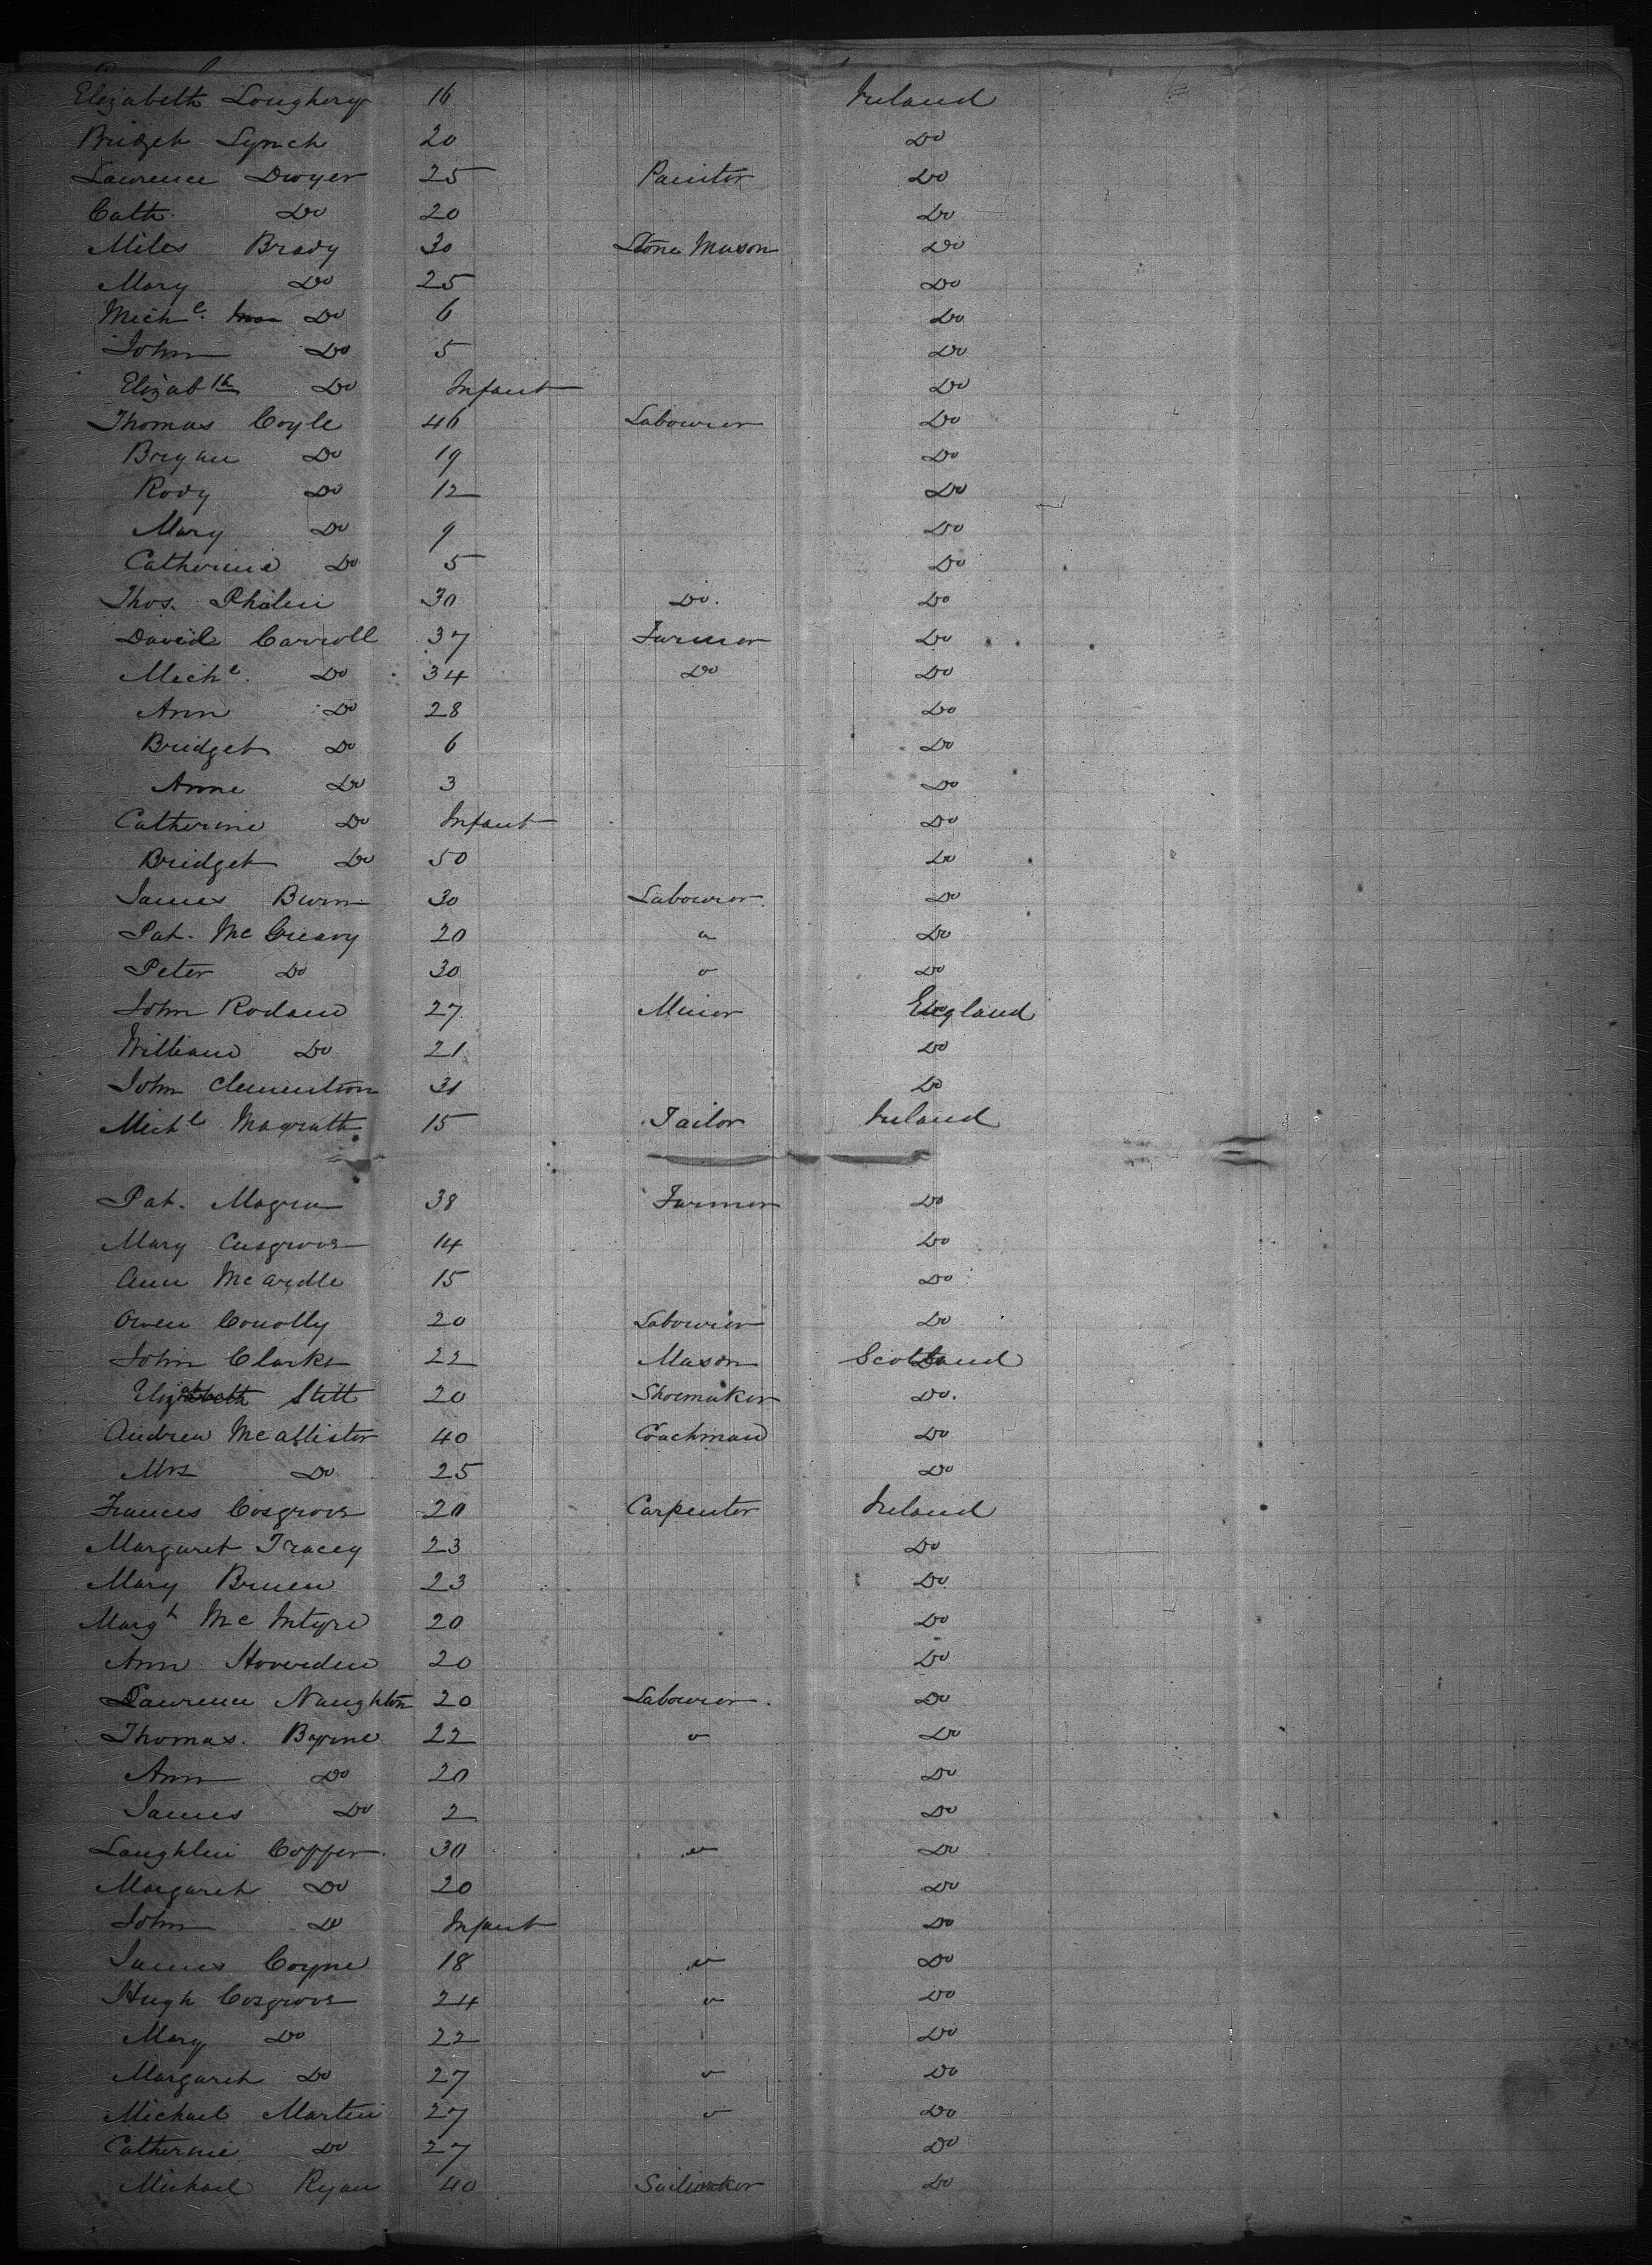 Elizabeth Loughery 16 Ireland
Bridget Lynch 20 Do
Lawrence Dwyer 25 Painter Do
Cath. Do 20 Do
Miles Brady 30 Stone Mason Do
Mary Do 25 Do
Michl. Do 6 Do
John Do 5 Do
Elizabth Do Infant Do
Thomas Coyle 46 Labourer Do
Bryan Do 19 Do
Rody Do 12 Do
Mary Do 9 Do
Catherine Do 5 Do
Thos. Phalen 30 Do. Do
David Carroll 37 Farmer Do
Michl. Do 34 Do Do
Ann Do 28 Do
Bridget Do 6 Do
Anne Do 3 Do
Catherine Do Infant Do
Bridget Do 50 Do
James Burn 30 Labourer Do
Pat. McGreavy 20 " Do
Peter Do 30 " Do
John Rodam 27 Miner England
William Do 21 Do
John Clementson 31 Do
Michl Magrath 15 Tailor Ireland
Pat. Magra 38 Farmer Do
Mary Cusgrove 14 Do
Ann McArdle 15 Do
Owen Conolly 20 Labourer Do
John Clarke 22 Mason Scotland
Stitt 20 Shoemaker Do.
Andrew McAllister 40 Coachman Do
Mrs Do 25 Do
Frances Cosgrove 20 Carpenter Ireland
Margaret Tracey 23 Do
Mary Bruen 23 Do
Margt McIntyre 20 Do
Ann 20 Do
Lawrence Naughton 20 Labourer Do
Thomas. Byrne 22 " Do
Ann Do 20 Do
James Do 2 Do
Laughlin Copper 30 " Do
Margaret Do 20 Do
John Do Infant Do
James Coyne 18 " Do
Hugh Cosgrove 24 " Do
Mary Do 22 Do
Margaret Do 27 " Do
Michael Martin 27 " Do
Catherine Do 27 Do
Michael Ryan 40 Sailmaker Do